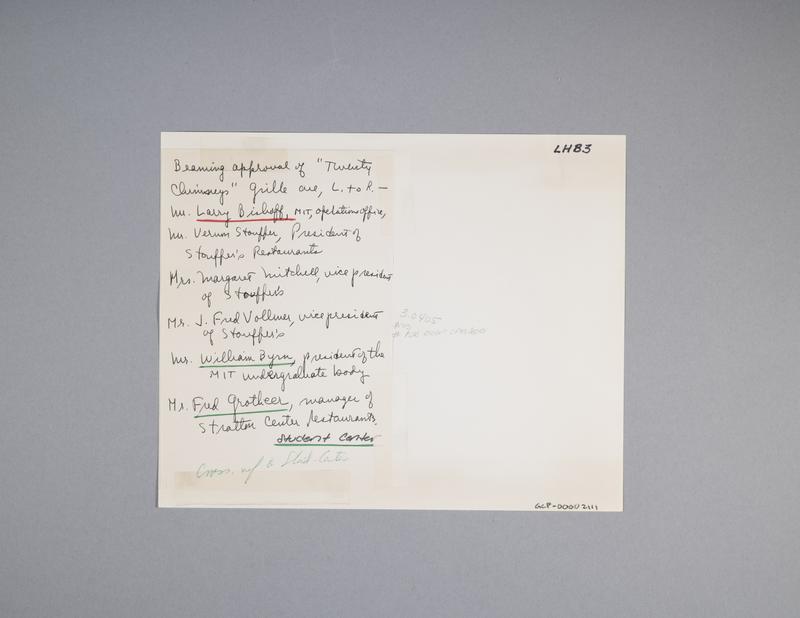 LHB3
Beaming approval of "Twenty
Chimneys" Grille are, L. to R. —
Mr. Larry Bishoff, MIT, operations office,
Mr. Vernon Stouffer, President of
Stouffer's Restaurants
Mrs. Margaret Mitchell, vice president
of Stouffer's
Mr. J. Fred Vollmer, vice president
of Stouffer's
Mr. William Byrn, president of the
MIT undergraduate body
Mr. Fred Grotheer, manager of
Stratton Center Restaurants.
Student Center
Cross. ref to Stud. Center
GCP-00002111